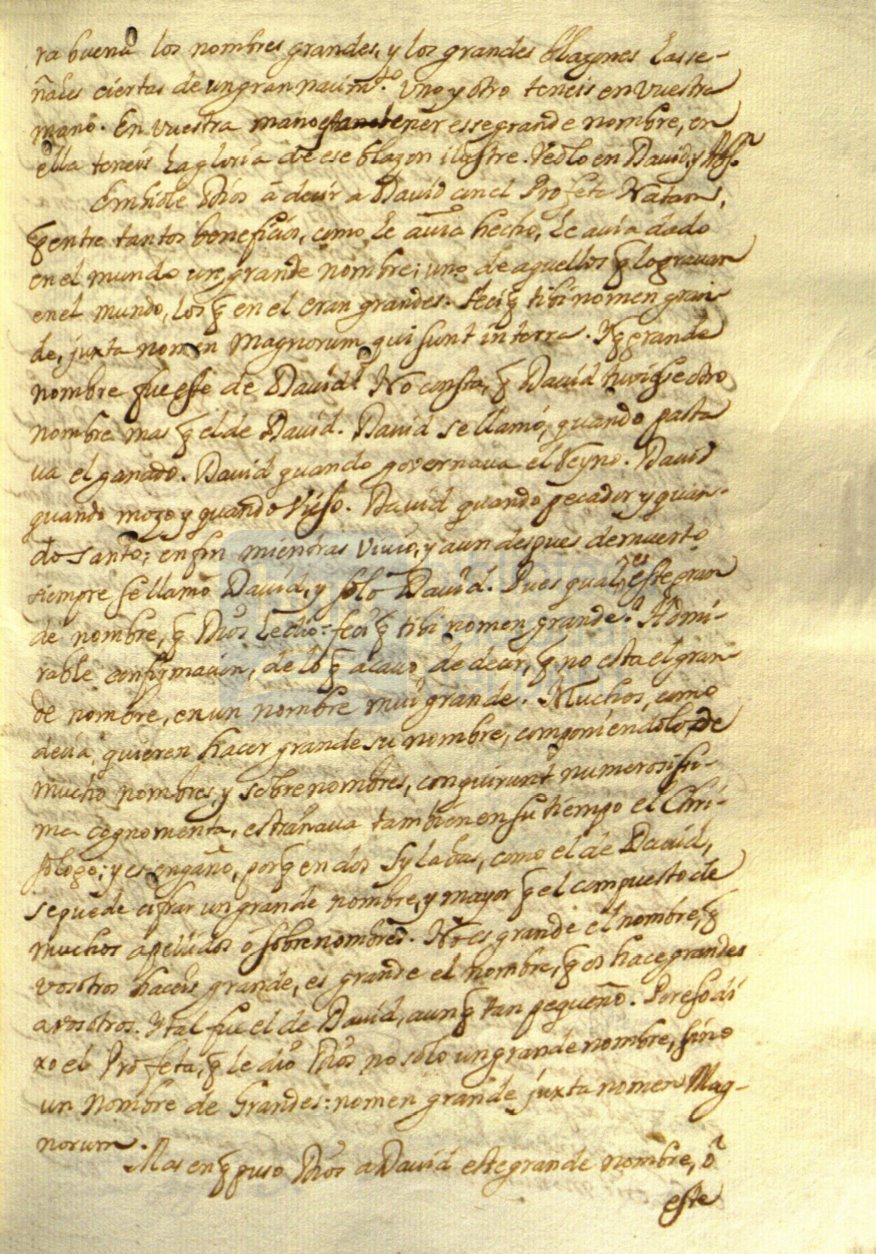 ra buena los nombres grandes, y los grandes blazones las se-
ñales ciertas de un gran nacimto. Uno y otro teneis en vuestra
mano. En vuestra mano esse grande nombre, en
ella teneis la gloria de ese blazon ilustre. Veolo en David, y
Embiole Dios â decir a David con el Profeta Natan,
q̃ entre tantos beneficios, como le auia hecho, le auia dado
en el mundo un grande nombre; uno de aquellos q̃ lograuan
en el mundo, los q̃ en el eran grandes. feciq̃ tibi nomen gran-
de, juxta nomen Magnorum qui sunt in terra. Y q̃ grande
nombre fue esse de David? No consta, q̃ David tuviesse otro
nombre mas q̃ el de David. David se llamó, quando pasta
ua el ganado. David quando governaua el Reyno. David
quando mozo y quando viejo. David quando pecador y quan-
do santo; en fin mientras vivio, y aun despues de muerto
siempre se llamó David, y solo David. Pues qual es este gran
de nombre, q̃ Dios le dio: feciq̃ tibi nomen grande? Admi-
rable confirmacion, de lo q̃ acauo de decir, q̃ no esta el gran
de nombre, en un nombre mui grande. Muchos, como
decia, quieren hacer grande su nombre, componiendolo de
mucho nombres, y sobrenombres, conquirunt numerosissi-
ma cognomenta, estrañaua tambien en su tiempo el Chri-
sologo; y es engaño, porq̃ en dos sylabas, como el de David,
se puede cifrar un grande nombre, y mayor q̃ el compuesto de
muchos apellidos ô sobrenombres. No es grande el nombre, q̃
vosotros haceis grande, es grande el nombre, q̃ os hace grandes
a vosotros. Y tal fue el de David, aunq̃ tan pequeño. Por eso di
xo el Profeta, q̃ le dio Dios no solo un grande nombre, sino
un Nombre de Grandes: nomen grande juxta nomen Mag-
norum.
Mas en q̃ puso Dios a David este grande nombre, ô
este